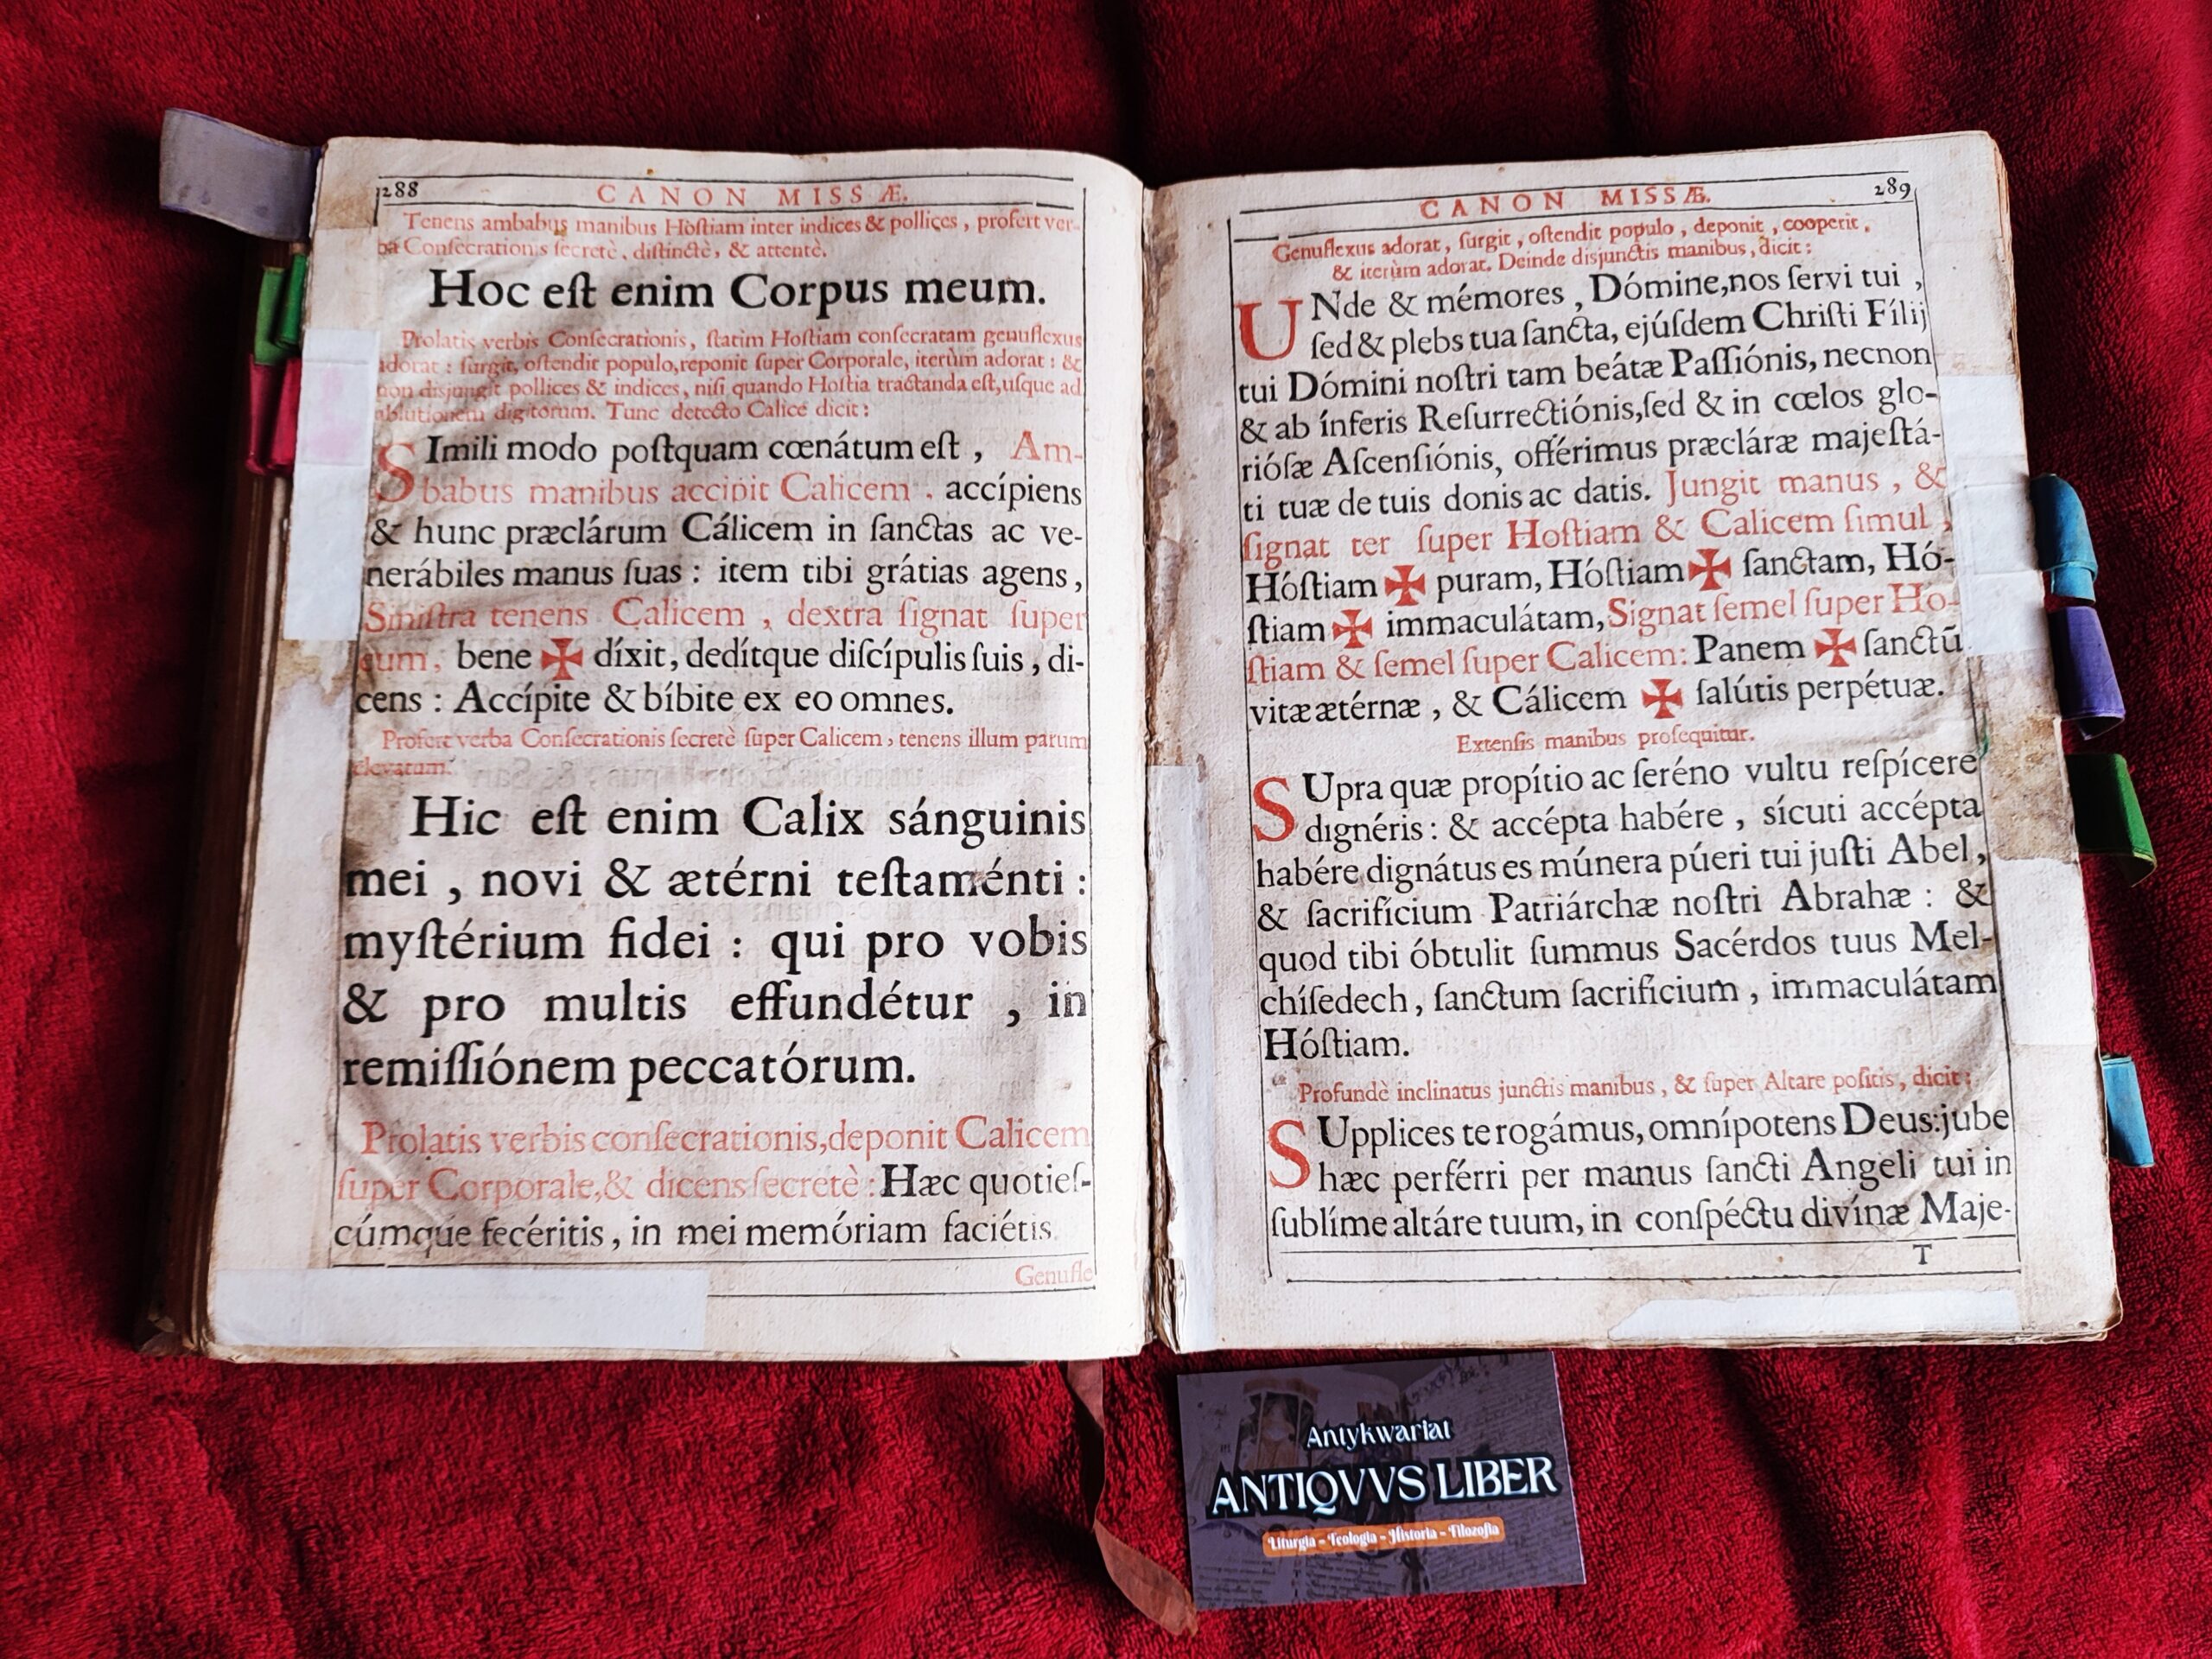 288
CANON MISSÆ.
Tenens ambabus manibus Hoſtiam inter indices & pollices, profert ver-
ba Conſecrationis ſecretè, diſtinctè, & attentè.
Hoc eſt enim Corpus meum.
Prolatis verbis Conſecrationis, ſtatim Hoſtiam conſecratam genuflexus
adorat: ſurgit, oſtendit populo, reponit ſuper Corporale, iterùm adorat: &
non disjungit pollices & indices, niſi quando Hoſtia tractanda eſt, uſque ad
ablutionem digitorum. Tunc detecto Calice dicit:
SImili modo poſtquam cœnátum eſt, Am-
babus manibus accipit Calicem. accípiens
& hunc præclárum Cálicem in ſanctas ac ve-
nerábiles manus ſuas: item tibi grátias agens,
Siniſtra tenens Calicem, dextra ſignat ſuper
eum, bene ✠ díxit, dedítque diſcípulis ſuis, di-
cens: Accípite & bíbite ex eo omnes.
Profert verba Conſecrationis ſecretè ſuper Calicem, tenens illum parum
elevatum.
Hic eſt enim Calix sánguinis
mei, novi & ætérni teſtaménti:
myſtérium fidei: qui pro vobis
& pro multis effundétur, in
remiſſiónem peccatórum.
Prolatis verbis conſecrationis, deponit Calicem
ſuper Corporale, & dicens ſecretè: Hæc quotieſ-
cúmque fecéritis, in mei memóriam faciétis.
Genufle
CANON MISSÆ.
289
Genuflexus adorat, ſurgit, oſtendit populo, deponit, cooperit,
& iterùm adorat. Deinde disjunctis manibus, dicit:
UNde & mémores, Dómine, nos ſervi tui,
ſed & plebs tua ſancta, ejúſdem Chriſti Fílij
tui Dómini noſtri tam beátæ Paſſiónis, necnon
& ab ínferis Reſurrectiónis, ſed & in cœlos glo-
rióſæ Aſcenſiónis, offérimus præcláræ majeſtá-
ti tuæ de tuis donis ac datis. Jungit manus, &
ſignat ter ſuper Hoſtiam & Calicem ſimul,
Hóſtiam ✠ puram, Hóſtiam ✠ ſanctam, Hó-
ſtiam ✠ immaculátam, Signat ſemel ſuper Ho-
ſtiam & ſemel ſuper Calicem: Panem ✠ ſanctū
vitæ ætérnæ, & Cálicem ✠ ſalútis perpétuæ.
Extenſis manibus proſequitur.
SUpra quæ propítio ac ſeréno vultu reſpícere
dignéris: & accépta habére, sícuti accépta
habére dignátus es múnera púeri tui juſti Abel,
& ſacrifícium Patriárchæ noſtri Abrahæ: &
quod tibi óbtulit ſummus Sacérdos tuus Mel-
chíſedech, ſanctum ſacrificium, immaculátam
Hóſtiam.
Profundè inclinatus junctis manibus, & ſuper Altare poſitis, dicit:
SUpplices te rogámus, omnípotens Deus: jube
hæc perférri per manus ſancti Angeli tui in
ſublíme altáre tuum, in conſpéctu divínæ Maje-
T
Antykwariat
ANTIQVVS LIBER
Liturgia - Teologia - Historia - Filozofia